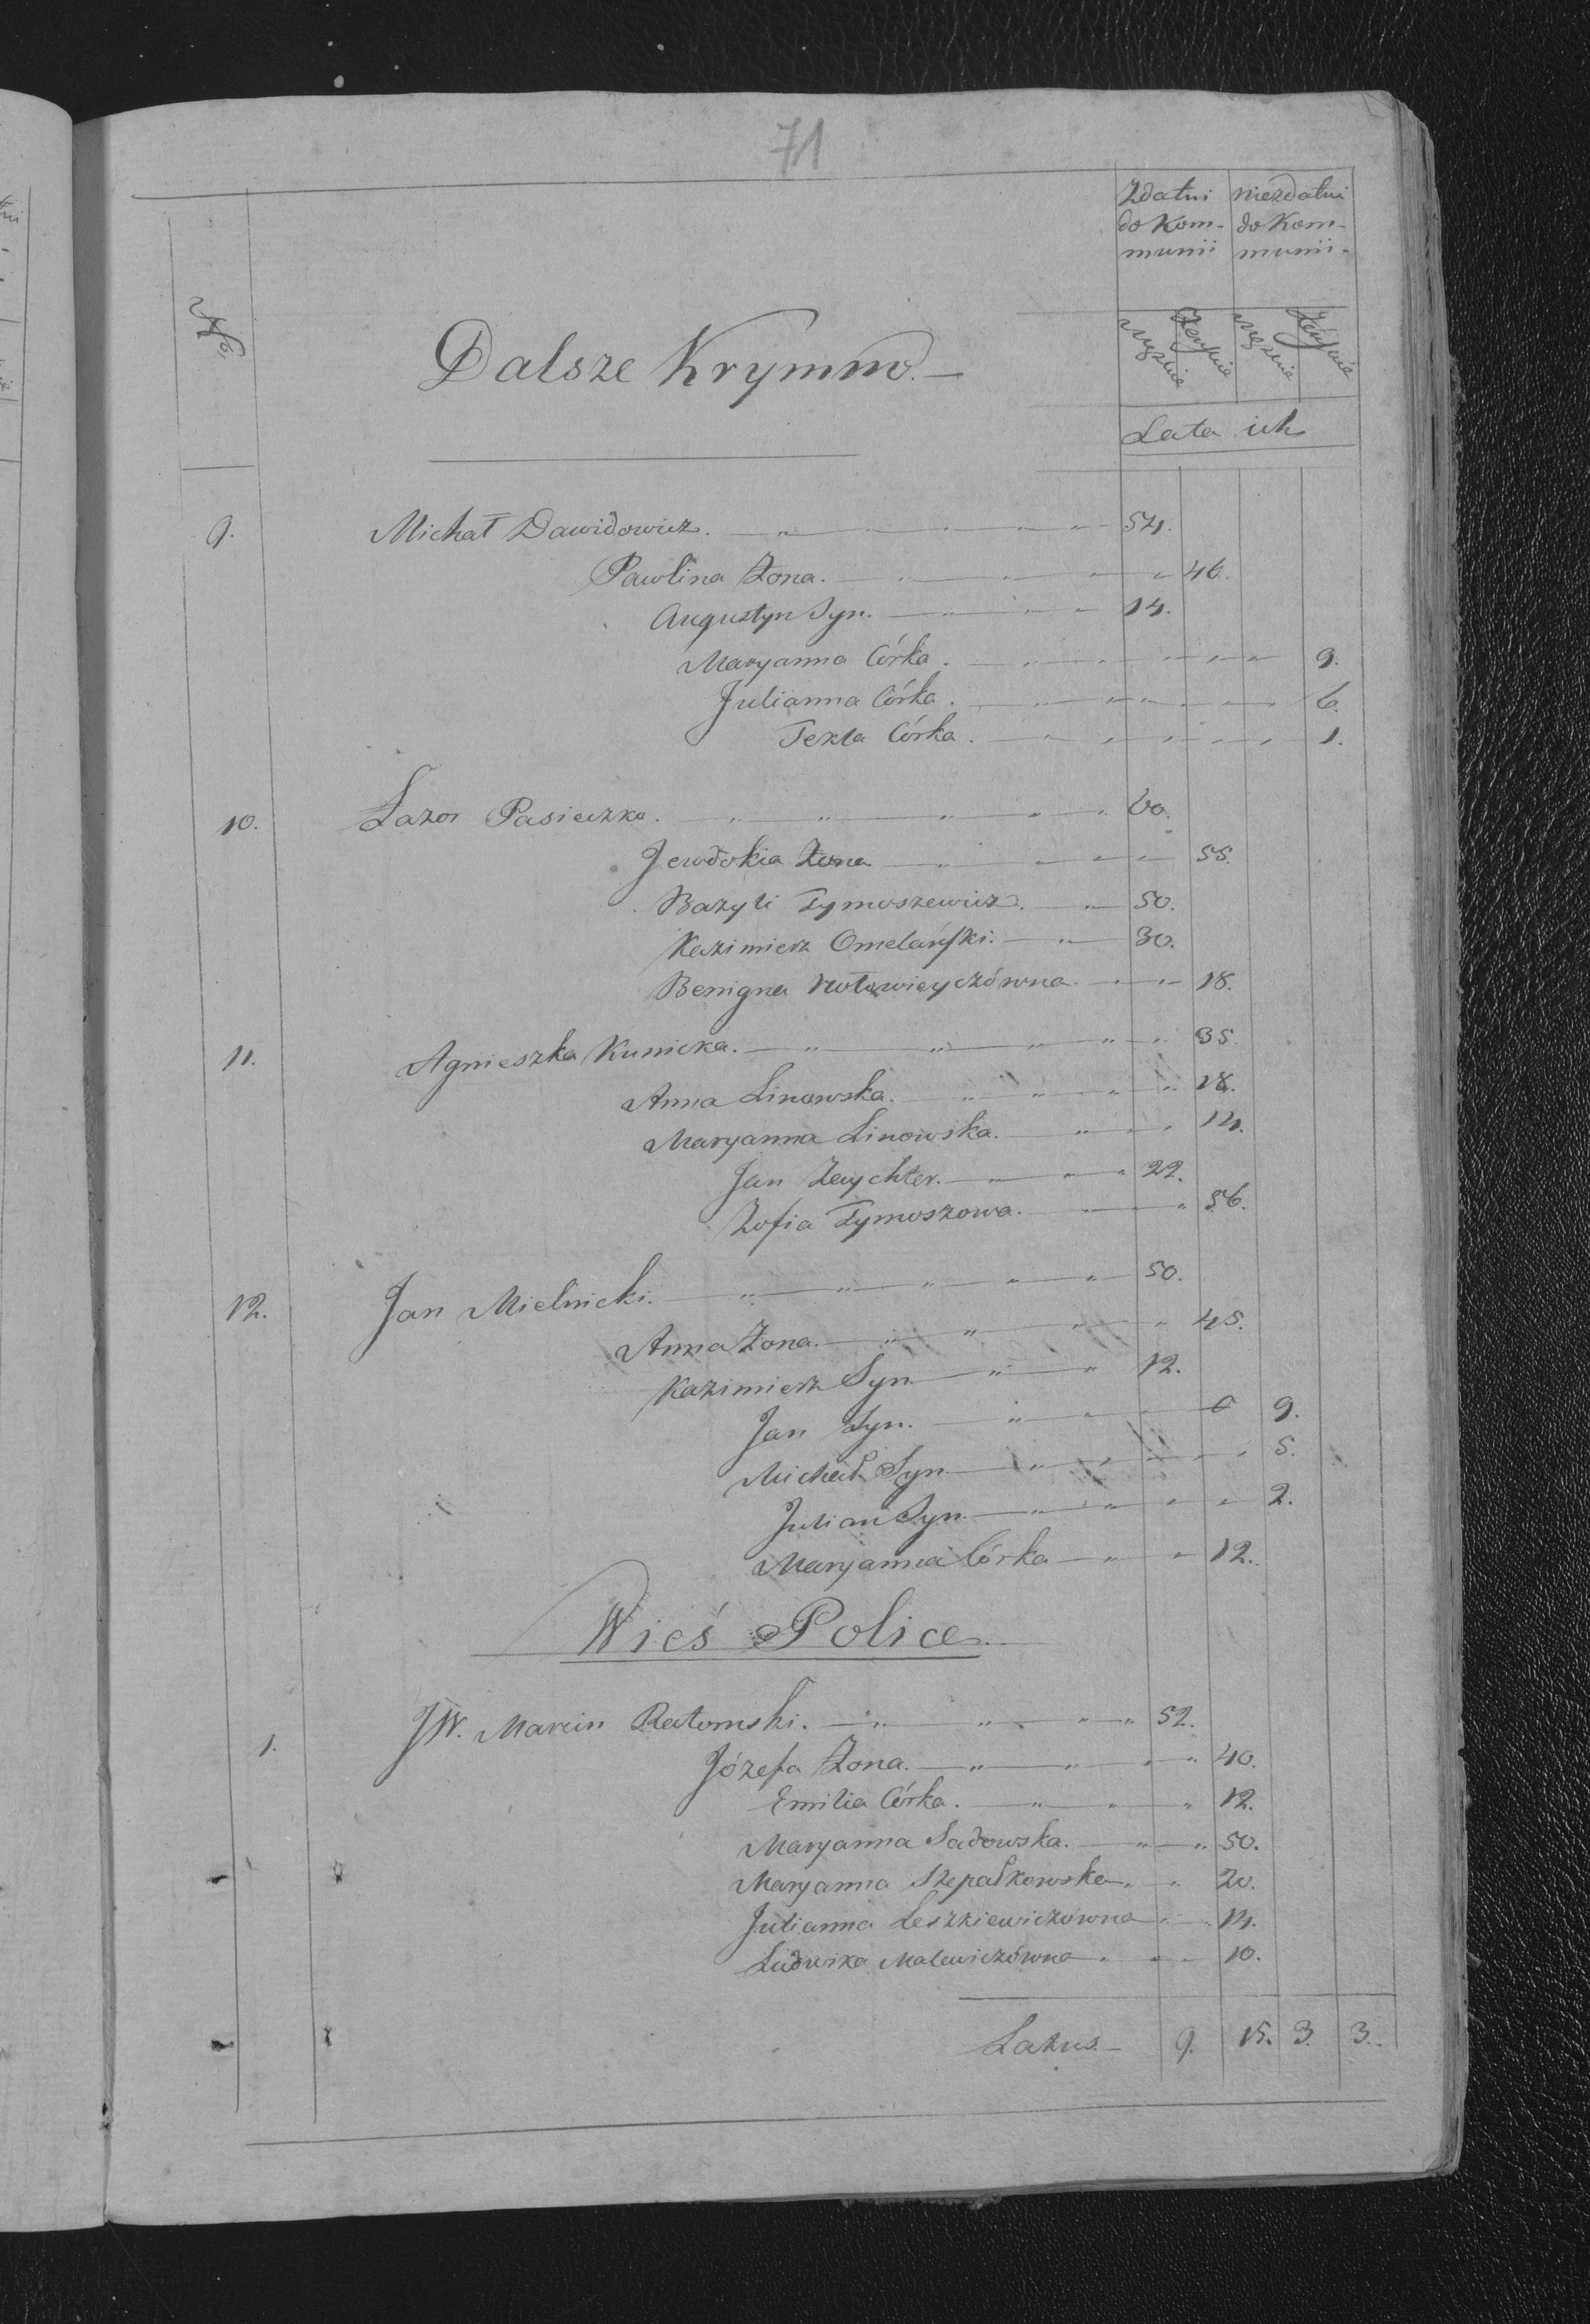 71
Zdatni do Kom-munii niezdatni do Kom-munii-
No. Męzkie Żeńskie Męzkie Żeńskie
Dalsze Krymno.—
Lata ich
9. Michał Dawidowicz. 54.
Pawlina Żona. 46.
Augustyn Syn. 14.
Maryanna Córka. 9.
Julianna Córka. 6.
Tekla Córka. 1.
10. Łazor Pasieczka. 60.
Jewdokia Żona 55.
Bazyli Tymoszewicz. 50.
Kazimierz Omelański. 30.
Benigna 18.
11. Agnieszka Kunicka. 35.
Anna Linowska. 18.
Maryanna Linowska. 14.
Jan Zaychter. 22.
Zofia Tymoszowa. 56.
12. Jan Mielnicki. 50.
Anna Żona. 45.
Kazimierz Syn 12.
Jan Syn. 9.
Michał Syn 5.
Julian Syn. 2.
Maryanna Córka 12.
Wieś Police.
1. JW. Marcin Ratomski. 52.
Józefa Żona. 40.
Emilia Córka. 12.
Maryanna Sadowska. 50.
Maryanna Szepałkowska. 20.
Julianna Leszkiewiczowna 14.
Ludwika Malewiczówna. 10.
Latus.— 9. 15. 3. 3.